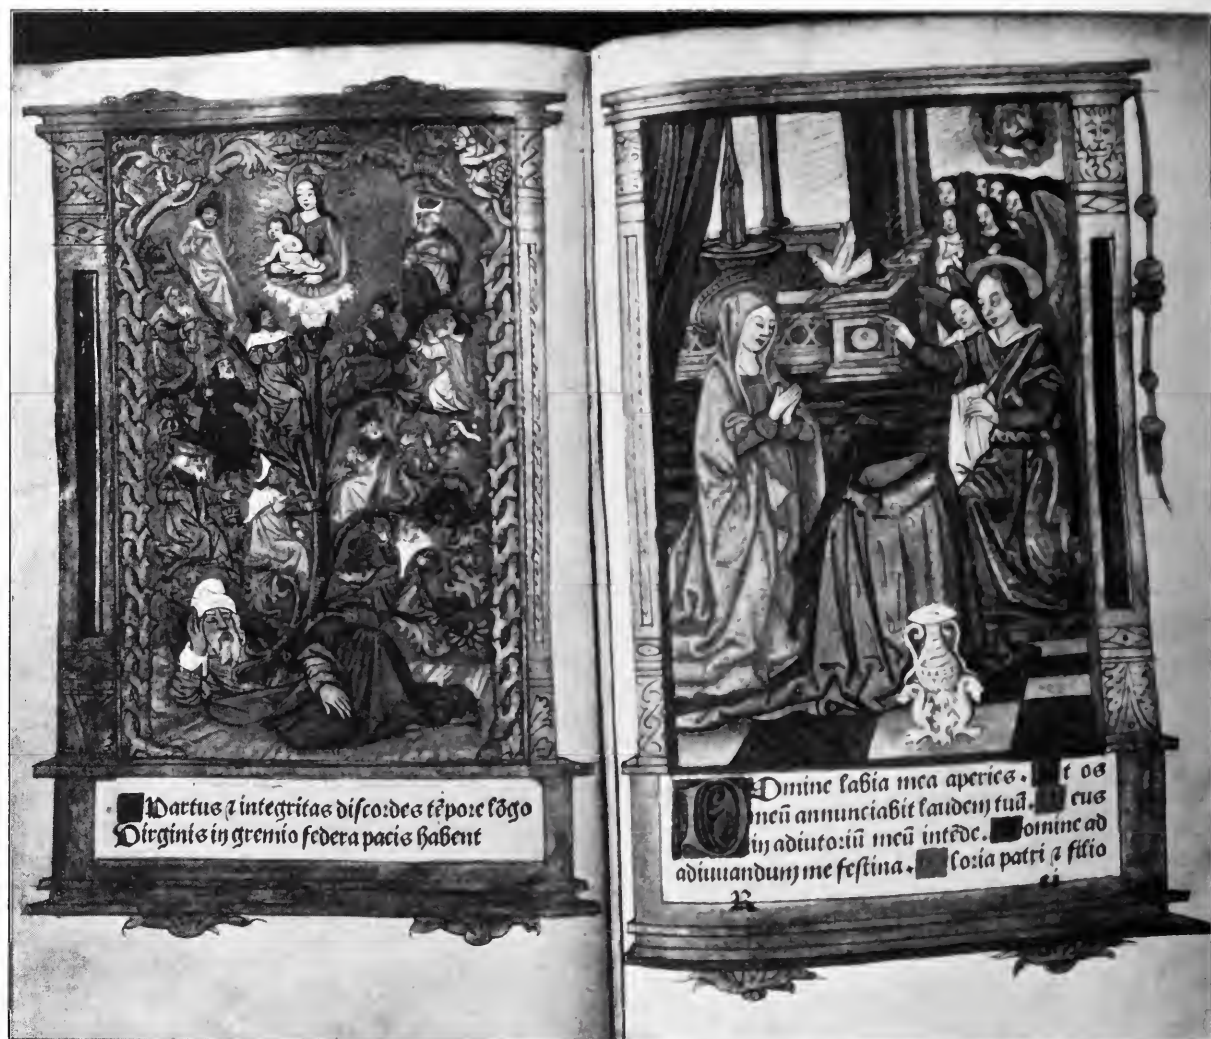 Partus ⁊ integritas discordes tẽpore lõgo
Virginis in gremio federa pacis habent
Domine labia mea aperies. t os
meũ annunciabit laudem tuã. eus
in adiutoriũ meũ intẽde. omine ad
adiuuandum me festina. loria patri ⁊ filio